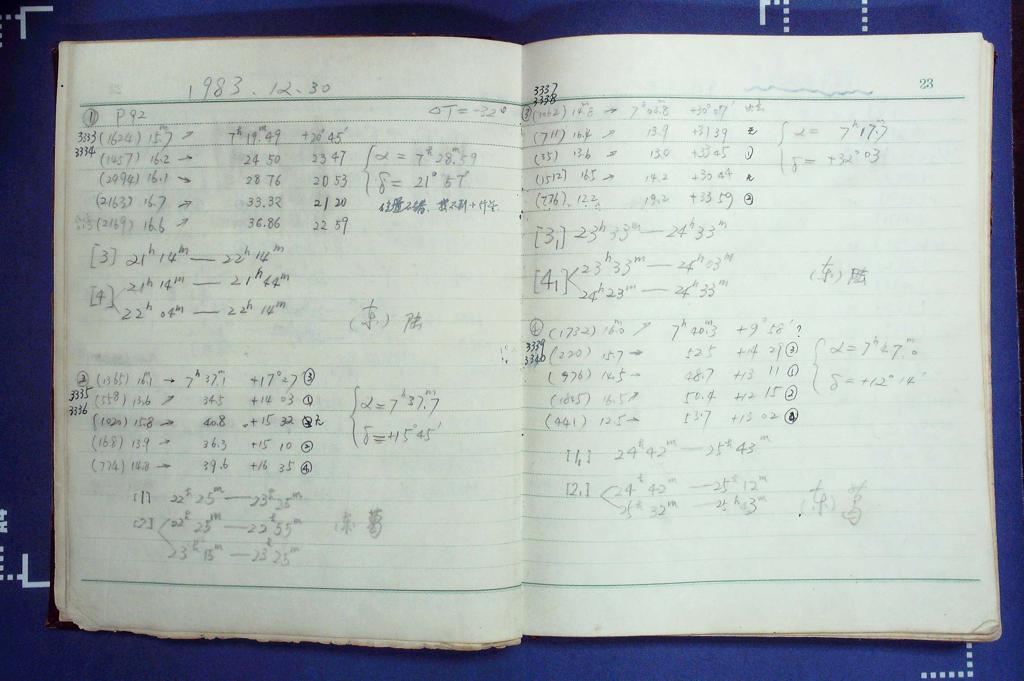 1983.12.30
① P92 ΔT=-32
3333 (1624) 15.ᵐ7 ↗ 7ʰ19.ᵐ49 +20°45′
3334 (1457) 16.2 → 24 50 23 47
(2494) 16.1 → 28 76 20 53
(2163) 16.7 33.32 21 20
(2169) 16.6 ↗ 36.86 22 59
{α = 7ʰ28.ᵐ59
δ = 21°57′
[3] 21ʰ14ᵐ — 22ʰ14ᵐ
[4] 21ʰ14ᵐ — 21ʰ44ᵐ
22ʰ04ᵐ — 22ʰ14ᵐ
(东) 陆
② (1365) 16.ᵐ1 → 7ʰ37.ᵐ1 +17°27′ ③
3335 (558) 13.6 ↗ 34.5 +14 03 ①
3336 (1020) 15.8 → 40.8 +15 32
(168) 13.9 → 36.3 +15 10 ②
(774) 14.8 → 39.6 +16 35 ④
{α = 7ʰ37.ᵐ7
δ = +15°45′
[1] 22ʰ25ᵐ — 23ʰ25ᵐ
[2] 22ʰ25ᵐ — 22ʰ55ᵐ
23ʰ15ᵐ — 23ʰ25ᵐ
东 葛
23
3337
3338
③ (1062) 14.8 → 7ʰ06.ᵐ8 +30°07′
(711) 16.4 ↗ 13.9 +31 39
(35) 13.6 → 13.0 +33 45 ①
(1512) 16.5 ↗ 14.2 +30 44
(776) 12.2 19.2 +33 59 ②
{α = 7ʰ17.ᵐ7
δ = +32°03
[3₁] 23ʰ33ᵐ — 24ʰ33ᵐ
[4₁] 23ʰ33ᵐ — 24ʰ03ᵐ
24ʰ23ᵐ — 24ʰ33ᵐ
(东) 陆
④ (1732) 16.ᵐ0 ↗ 7ʰ40.ᵐ3 +9°58′ ?
3339
3340 (220) 15.7 → 52.5 +14 29 ③
(976) 14.5 → 48.7 +13 11 ①
(1805) 16.5 ↗ 50.4 +12 15 ②
(441) 12.5 → 53.7 +13 02 ④
{α = 7ʰ47.ᵐ0
δ = +12°14′
[1₁] 24ʰ42ᵐ — 25ʰ43ᵐ
[2₁] 24ʰ42ᵐ — 25ʰ12ᵐ
25ʰ32ᵐ — 25ʰ43ᵐ
(东) 葛